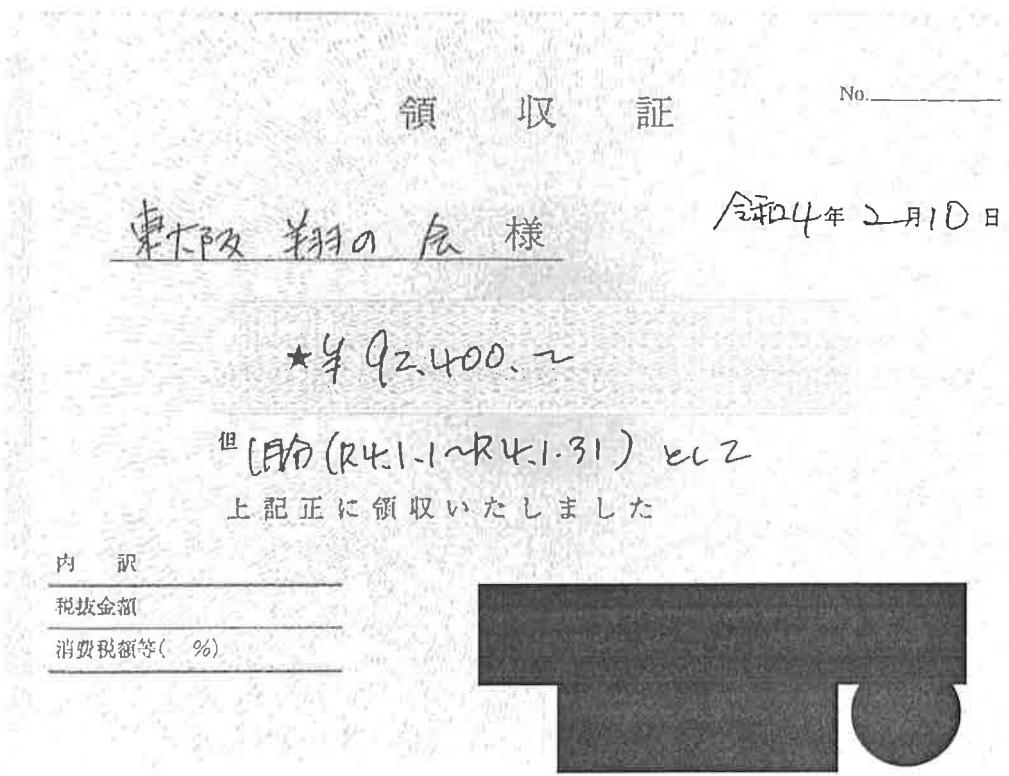 領 収 証
No.
令和4年 2月10日
東大阪 翔の会 様
★¥92,400.~
但 1月分(R4.1.1~R4.1.31)として
上記正に領収いたしました
内 訳
税抜金額
消費税額等( %)